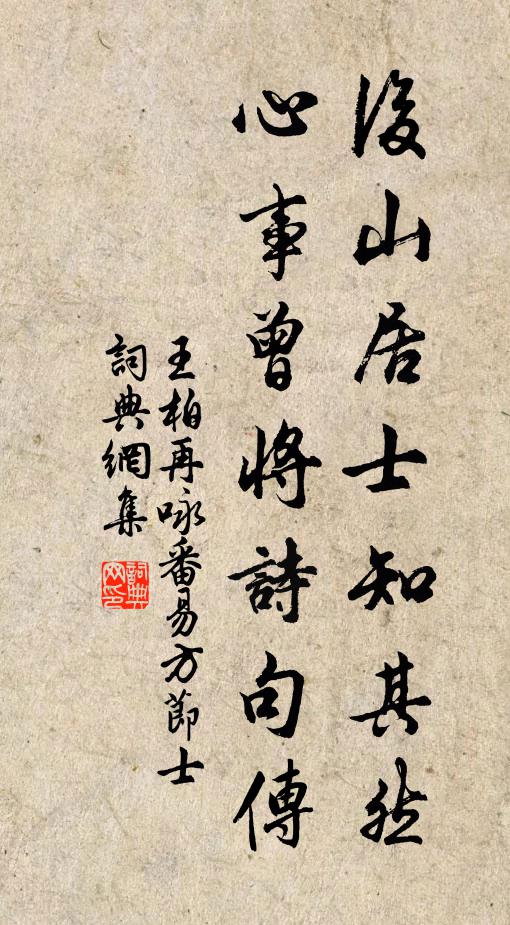 後山居士知其然
心事曾將詩句傳
王柏再咏番易方節士
詞典網集
詞典网印